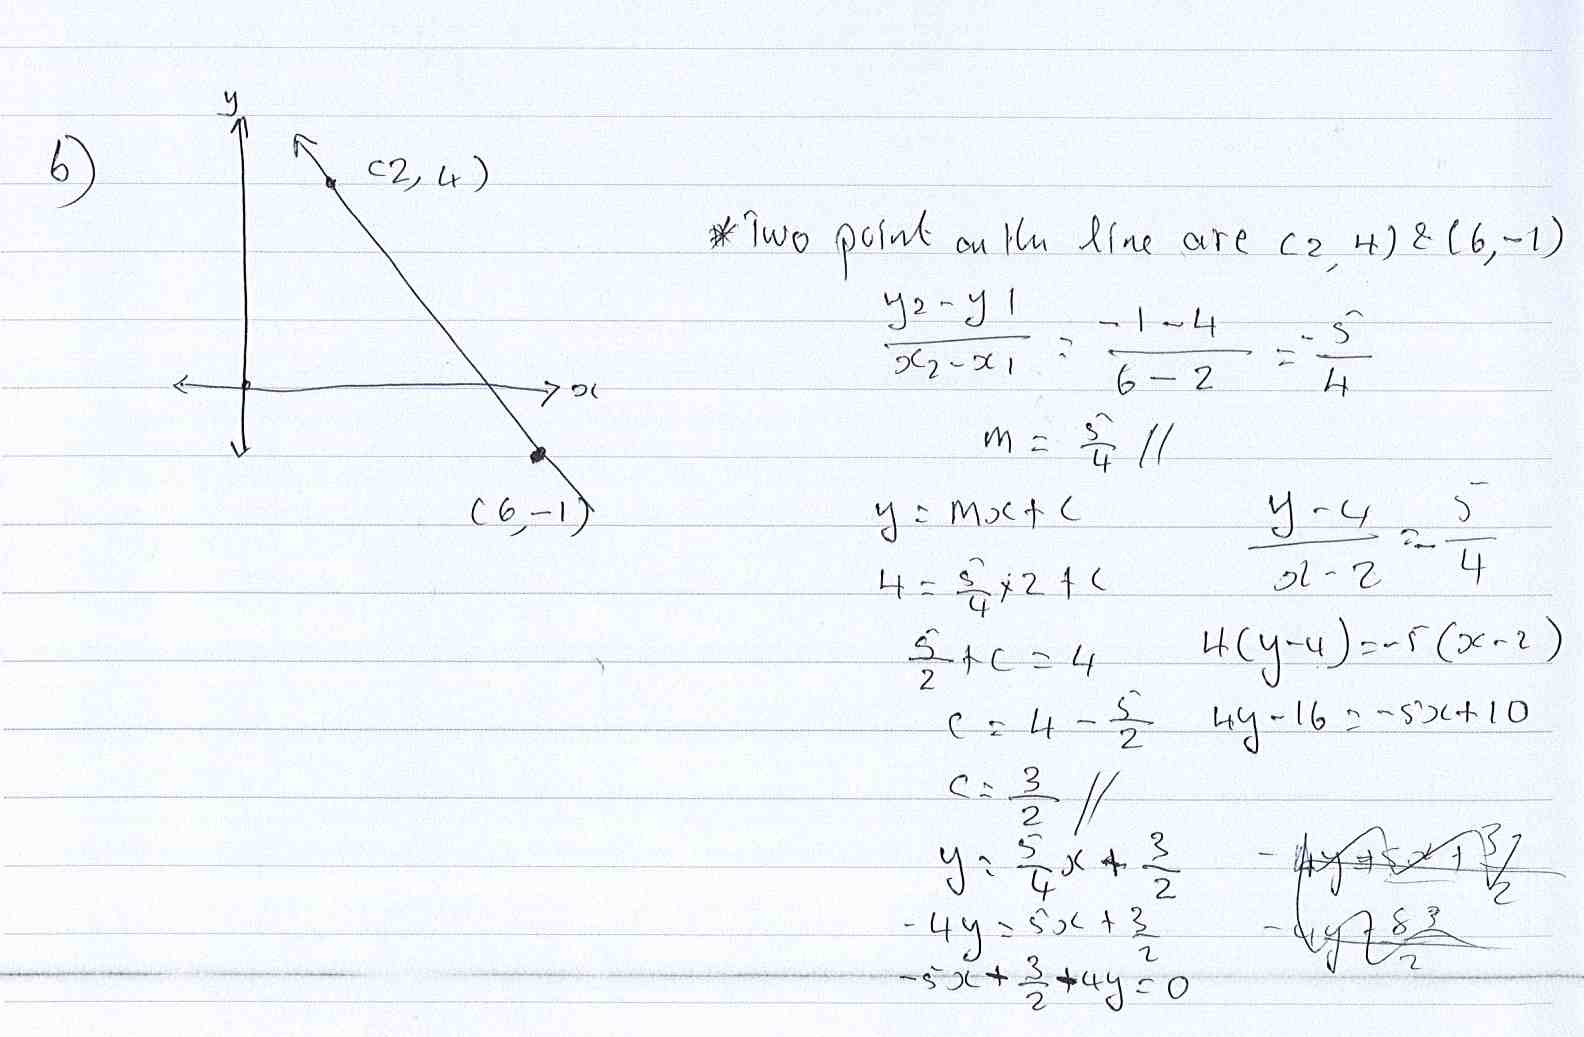 b)
y
(2, 4)
x
(6, -1)
* Two point on the line are (2, 4) & (6, -1)
y2 - y1 / x2 - x1 = -1 - 4 / 6 - 2 = -5/4
m = 5/4 //
y = mx + c
4 = 5/4 × 2 + c
5/2 + c = 4
c = 4 - 5/2
c = 3/2 //
y = 5/4 x + 3/2
-4y = 5x + 3/2
-5x + 3/2 + 4y = 0
y - 4 / x - 2 = -5/4
4(y-4) = -5(x-2)
4y - 16 = -5x + 10